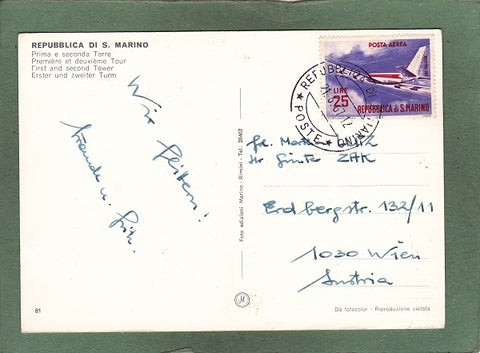 REPUBBLICA DI S. MARINO
Prima e seconda Torre
Première et deuxième Tour
First and second Tower
Erster und zweiter Turm
Wir feiern!
u.
81
Foto edizioni Marino - Rimini - Tel. 26462
M
POSTA AEREA
LIRE
25
REPUBBLICA di S. MARINO
REPUBBLICA DI S. MARINO
★ POSTE ★
Günter ZAK
Erdbergstr. 132/11
1030 Wien
Austria
Da fotocolor - Riproduzione vietata